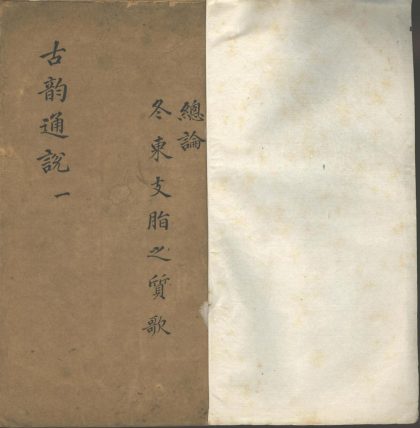 總論
冬東支脂之質歌
古韵通說 一